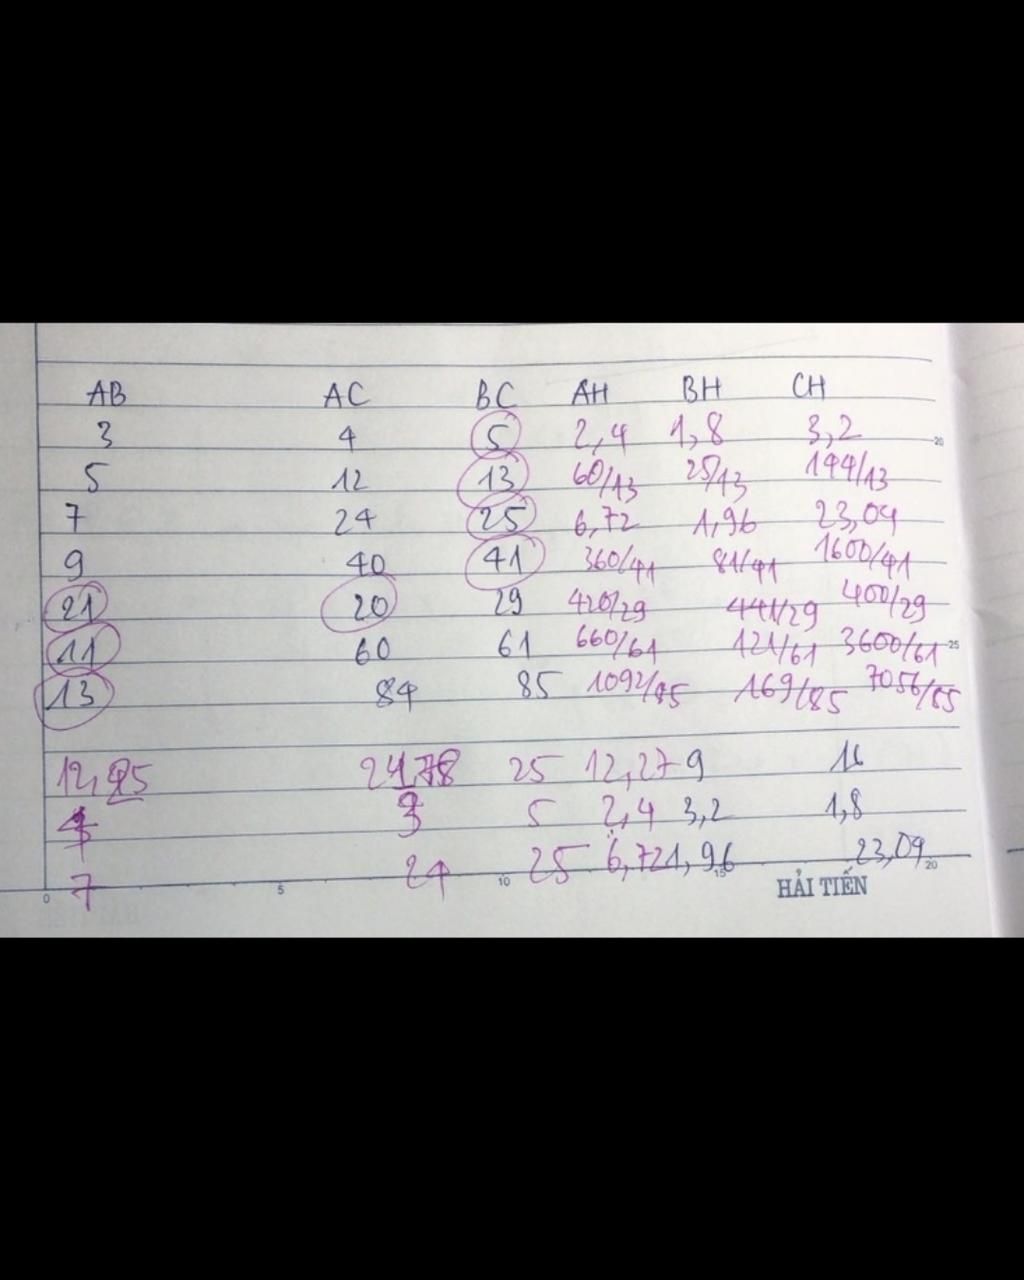 AB AC BC AH BH CH
3 4 5 2,4 1,8 3,2
5 12 13 60/13 25/13 144/13
7 24 25 6,72 1,96 23,04
9 40 41 360/41 81/41 1600/41
21 20 29 420/29 441/29 400/29
11 60 61 660/61 121/61 3600/61
13 84 85 1092/85 169/85 7056/85
25 12,27 9 16
4 3 5 2,4 3,2 1,8
7 24 25 6,72 1,96 23,04
0 5 10 15 20
HẢI TIẾN
20
25